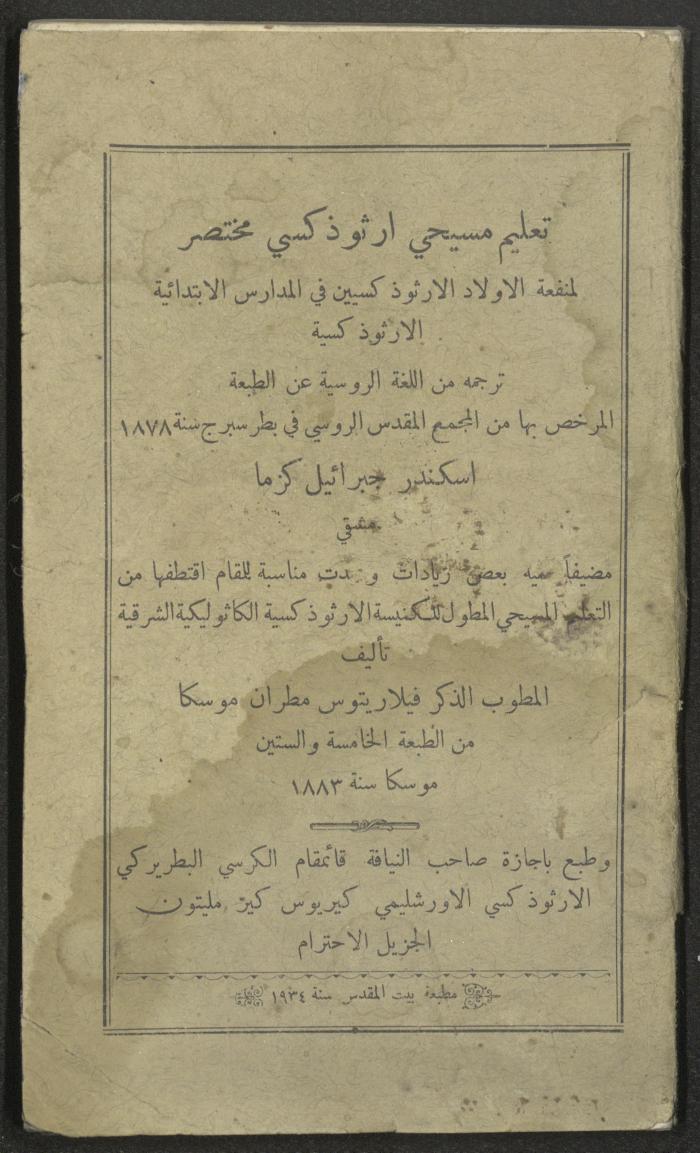 تعليم مسيحي ارثوذكسي مختصر
لمنفعة الاولاد الارثوذكسيين في المدارس الابتدائية
الارثوذكسية
ترجمه من اللغة الروسية عن الطبعة
المرخص بها من المجمع المقدس الروسي في بطرسبرج سنة ١٨٧٨
اسكندر جبرائيل كزما
مضيفاً بعض زيادات مناسبة للمقام اقتطفها من
التعليم المسيحي المطول للكنيسة الارثوذكسية الكاثوليكية الشرقية
تأليف
المطوب الذكر فيلاريتوس مطران موسكا
من الطبعة الخامسة والستين
موسكا سنة ١٨٨٣
وطبع باجازة صاحب النيافة قائمقام الكرسي البطريركي
الارثوذكسي الاورشليمي كيريوس كير مليتون
الجزيل الاحترام
مطبعة بيت المقدس سنة ١٩٣٤